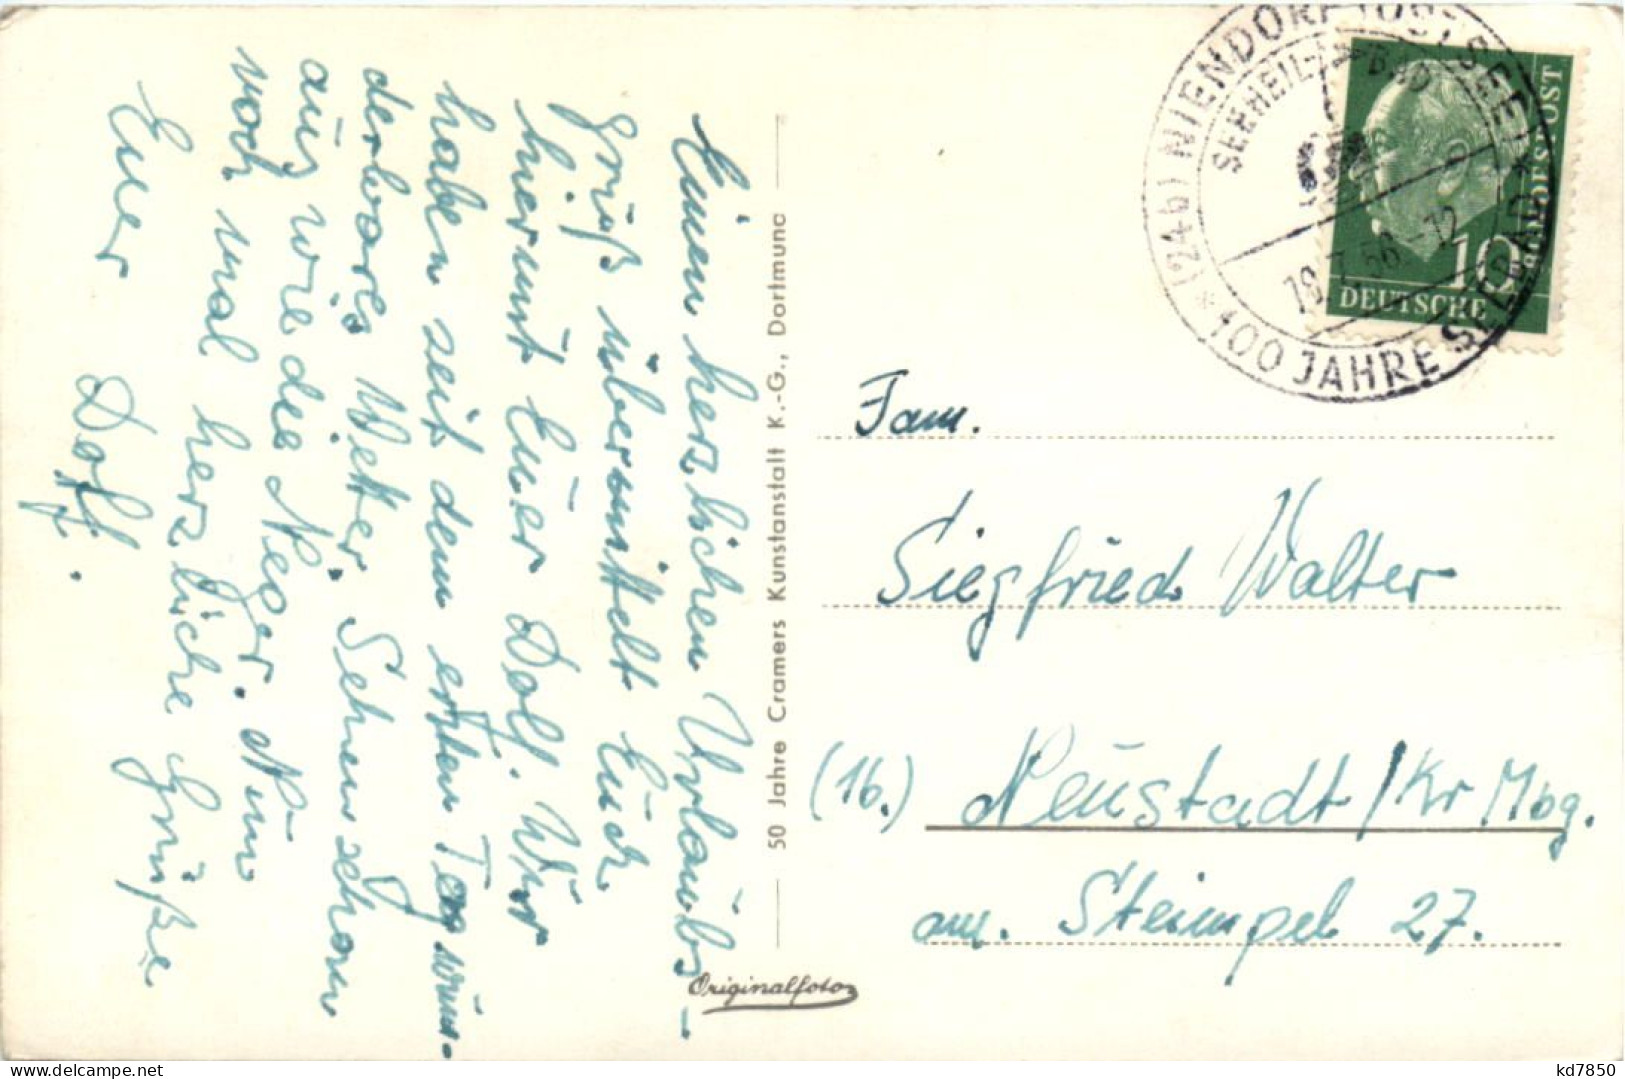 Einen herzlichen Urlaubs-
gruß übermittelt Euch
hiermit Euer Dolf. Wir
haben seit dem ersten Tag wun-
derbares Wetter. Sehen schon
aus wie die Neger. Nun
noch mal herzliche Grüße
Euer
Dolf.
50 Jahre Cramers Kunstanstalt K.-G., Dortmund
Originalfoto
(24b) NIENDORF (OSTSEE)
SEEHEIL- BAD
56.-12
* 100 JAHRE SEEBAD
DEUTSCHE
BUNDESPOST
10
Fam.
Siegfried Walter
(16.) Neustadt/Kr Mbg.
am. Steimpel 27.
kd7850